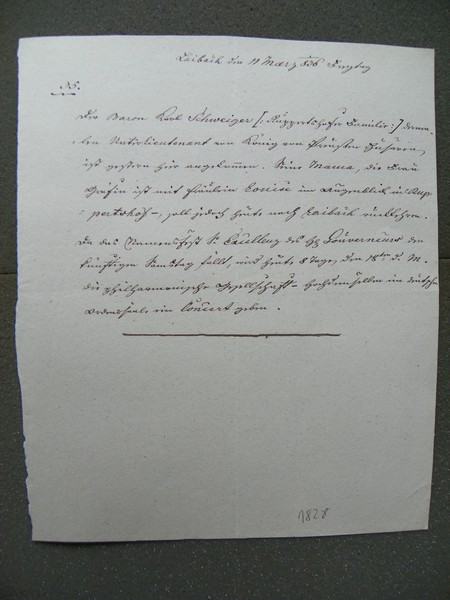 Laibach den 11 März 836 Freytag
NB.
Der Baron Karl Schweiger /: Ruppertshofer Familie :/ derma-
len Unterlieutenant von König von Preußen Husaren
ist gestern hier angekommen. Seine Mama, die Frau
Gräfin ist mit Fräulein Louise im Augenblick in Rup-
pertshof -, soll jedoch heute nach Laibach rückkehren.
Da das Namensfest Sr Excellenz des H Gouverneurs den
künftigen Samstag fällt, wird heute 8 Tage, den 18ten d. M.
die philharmonische Gesellschaft im deutschen
Ordenssaale ein Concert geben.
1828